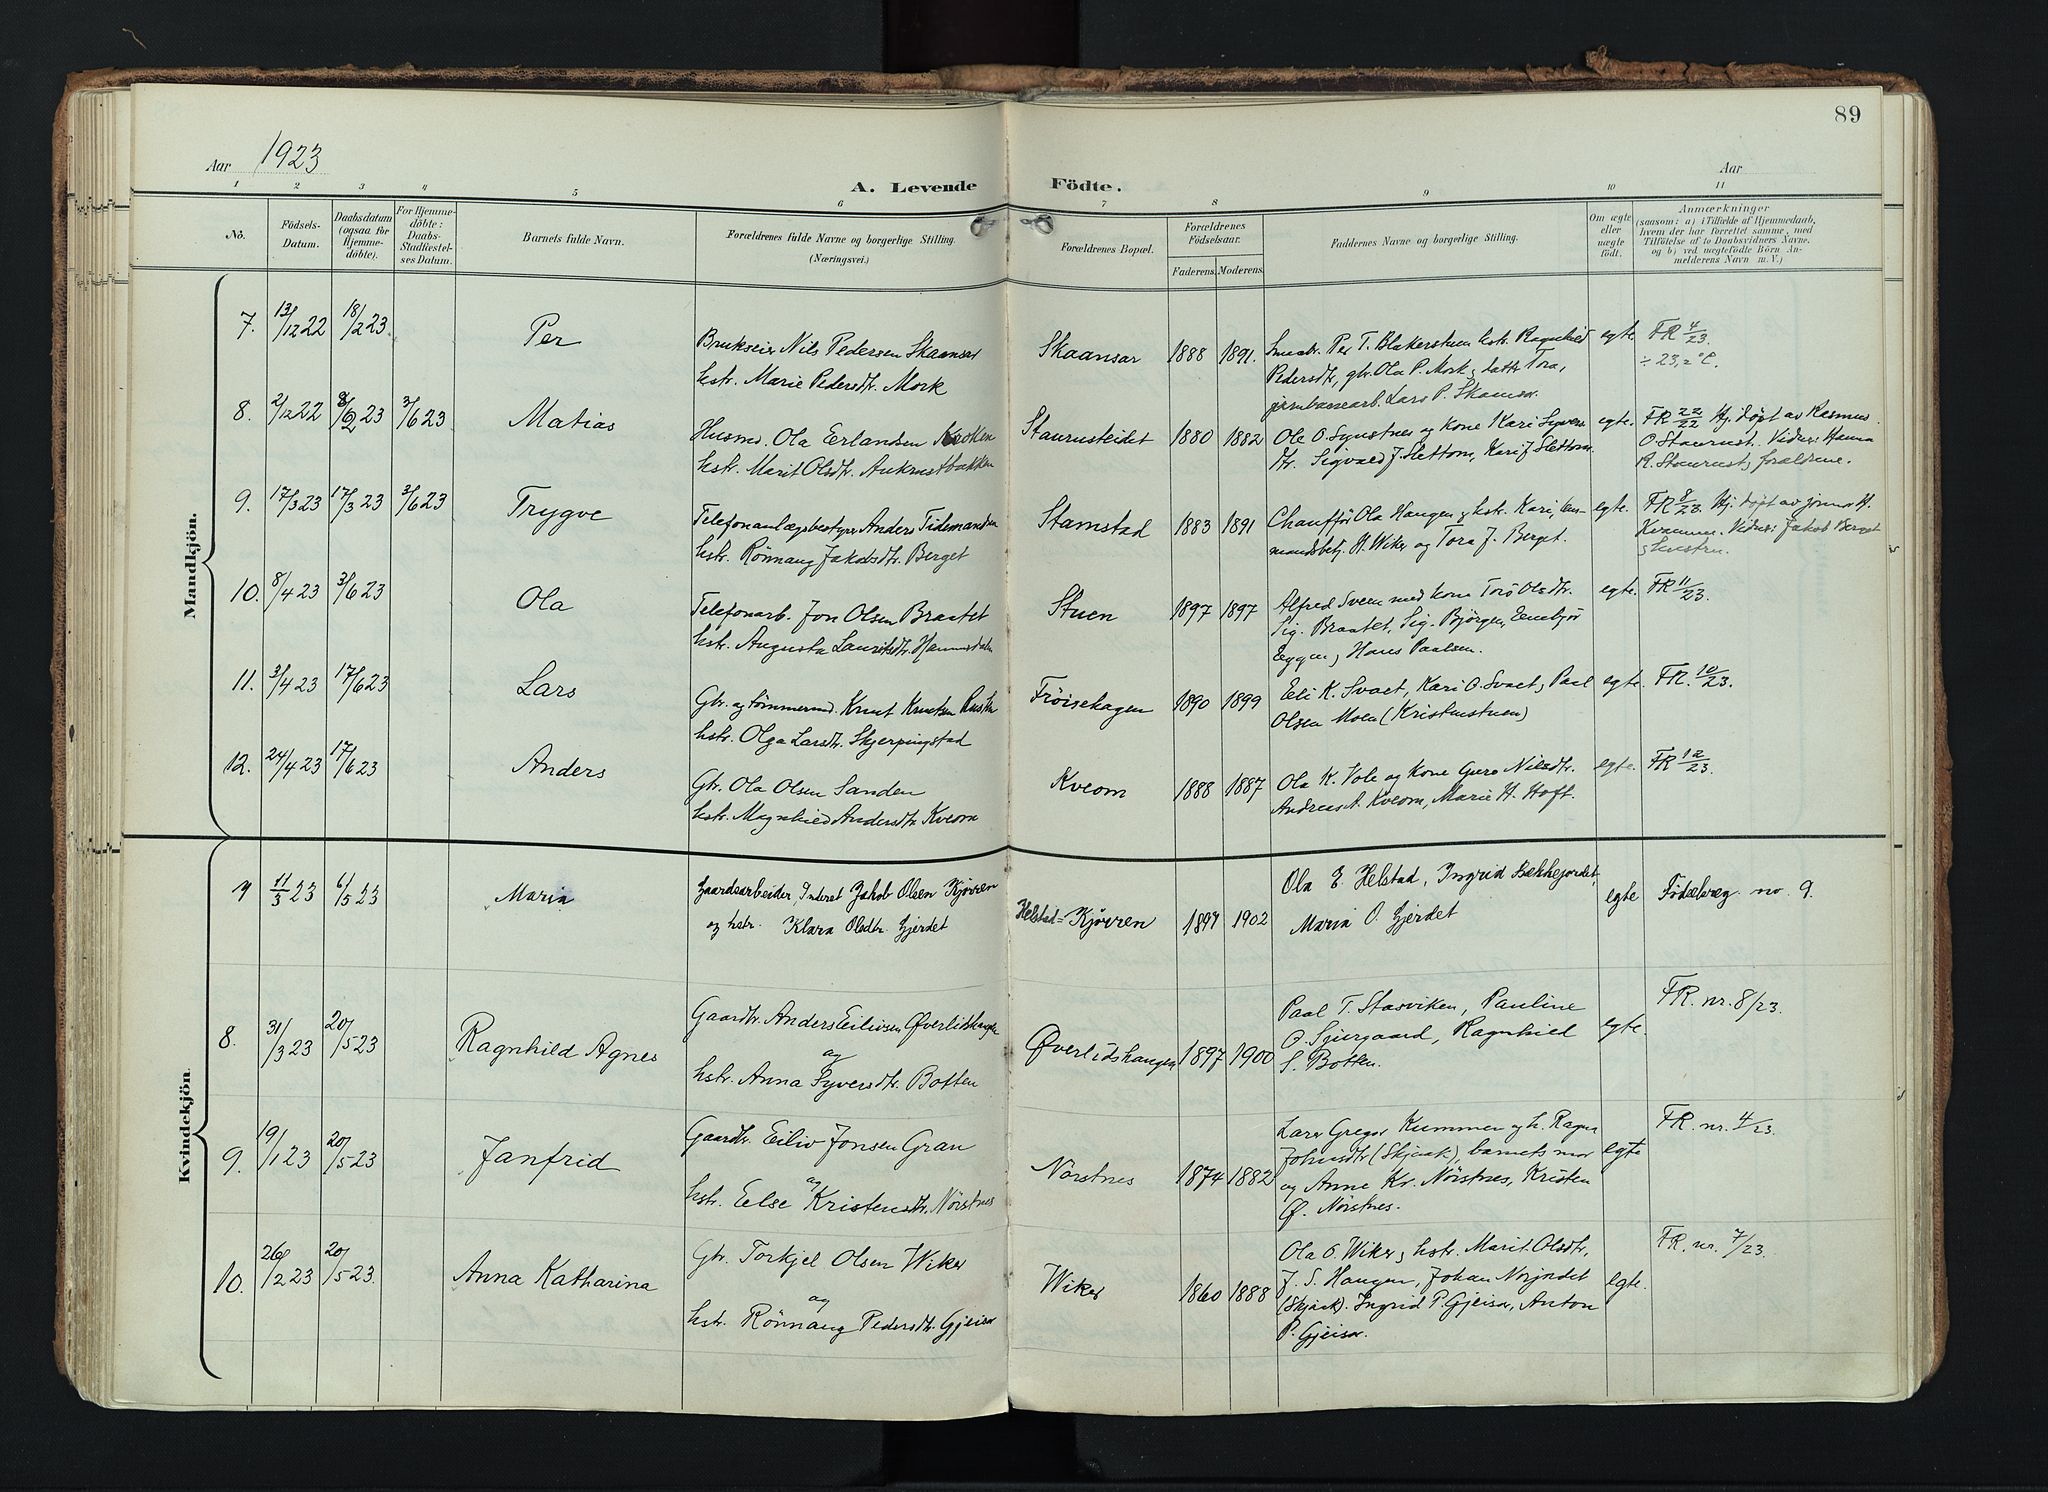 89
Aar 1923
Aar
1 2 3 4 5 6 7 8 9 10 11
A. Levende Födte.
No.
Födsels-Datum.
Daabsdatum (ogsaa for Hjemme-döbte).
For Hjemme-döbte: Daabs-Stadfestel-ses Datum.
Barnets fulde Navn.
Forældrenes fulde Navne og borgerlige Stilling.
(Næringsvei.)
Forældrenes Bopæl.
Forældrenes Födselsaar.
Faderens. Moderens.
Faddernes Navne og borgerlige Stilling.
Om ægte eller uægte födt.
Anmærkninger
(saasom: a) i Tilfælde af Hjemmedaab, hvem der har forrettet samme, med Tilföielse af to Daabsvidners Navne, og b) ved uægtefödte Börn An-melderens Navn m. V.)
Mandkjön.
7. 13/12 22 18/2 23 Per
Brukseier Nils Pedersen Skaansar
hstr. Marie Pedersdtr. Mork
Skaansar 1888 1891.
Per T. Blakerstuen hstr. Ragnhild
Pedersdtr, gbr. Ola P. Mork, datt. Tora,
jernbanearb. Lars P. Skansar
egte. FR 4/23.
÷ 23,2°C.
8. 2/12 22 8/2 23 3/6 23 Matias
Husmd. Ola Erlandsen Kroken
hstr. Marit Olsdtr. Aukrustbakken
Staurusteidet 1880 1882
Ole O. Synstnes og kone Kari Syvers
dtr. Sigvald J. Slettom, Kari J. Slettom
egte. FR 22/22 Hj. døpt av Rasmus
O. Staurust. Vidner: Hanna
R. Staurust, foraldrene.
9. 17/3 23 17/3 23 3/6 23 Trygve
Telefonanlægsbestyrer Anders Tidemandsen
hstr. Rønnaug Jakobsdtr. Berget
Stamstad 1883 1891
Chauffør Ola Haugen, hstr. Kari,
H. Wiker og Tora J. Berget.
egte. FR 8/23. Hj. døpt av jormor H.
Kvamme. Vidner: Jakob Berget
10. 8/4 23 3/6 23 Ola
Telefonarb. Jon Olsen Braatet
hstr. Augusta Lauritsdtr. Hammersdalen
Stuen 1897 1897
Alfred Sveen med kone Torø Olsdtr.
Sig. Braatet, Sig. Bjørgen,
Eggen, Hans Paalsen.
egte. FR 11/23.
11. 3/4 23 17/6 23 Lars
Gbr. og tømmermd. Knut Knutsen Rusten
hstr. Olga Larsdtr. Skjerpingstad
Frøisehagen 1890 1899
Eli K. Svaet, Kari O. Svaet, Paal
Olsen Moen (Kristenstuen)
egte. FR. 10/23.
12. 24/4 23 17/6 23 Anders
Gbr. Ola Olsen Sanden
hstr. Magnhild Andersdtr. Kveom
Kveom 1888 1887
Ola K. Vole og kone Guro Nilsdtr.
Andreas A. Kveom, Marie H. Hoft.
egte. FR 12/23.
Kvindekjön.
7 11/3 23 6/5 23 Maria
Gaardsarbeider, Inderst Jakob Olsen Kjørren
og hstr. Klara Olsdtr. Gjerdet
Helstad=Kjørren 1897 1902
Ola E. Helstad, Ingrid Bekkejordet,
Maria O. Gjerdet
egte Fødselsreg. no 9.
8. 31/3 23 20/5 23 Ragnhild Agnes
Gaardbr. Anders Eilivsen Øverlidshaugen
og
hstr. Anna Syversdtr. Botten
Øverlidshaugen 1897 1900
Paal T. Stasviken, Pauline
O. Sjurgaard, Ragnhild
S. Botten.
egte. FR. nr. 8/23.
9. 19/1 23 20/5 23 Janfrid
Gaardbr. Eiliv Jonsen Gran
og
hstr. Else Kristensdtr. Nørstnes
Nørstnes 1874 1882
Lars Gregor Kummen og h. Ragna
Johnsdtr (Skjaak), barnets mor
og Anne Kr. Nørstnes, Kristen
Ø. Nørstnes.
egte FR. nr. 4/23.
10. 26/2 23 20/5 23. Anna Katharina
Gbr. Torkjel Olsen Wiker
og
hstr. Rønnaug Pedersdtr. Gjeisar
Wiker 1860 1888
Ola O. Wiker, hstr. Marit Olsdtr,
J. S. Haugen, Johan Norjordet
(Skjaak). Ingrid P. Gjeisar, Anton
P. Gjeisar.
egte. FR. nr. 7/23.